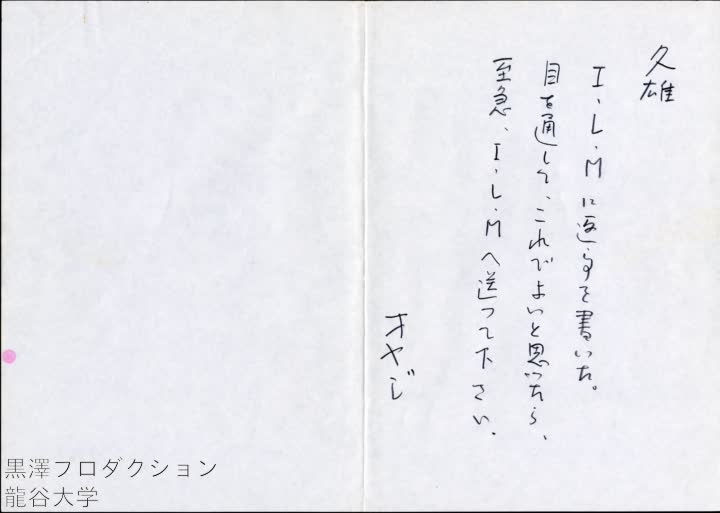 久雄
I・L・Mに返事を書いた。
目を通して、これでよいと思ったら、
至急、I・L・Mへ送って下さい。
オヤジ
黒澤フロダクション
龍谷大学